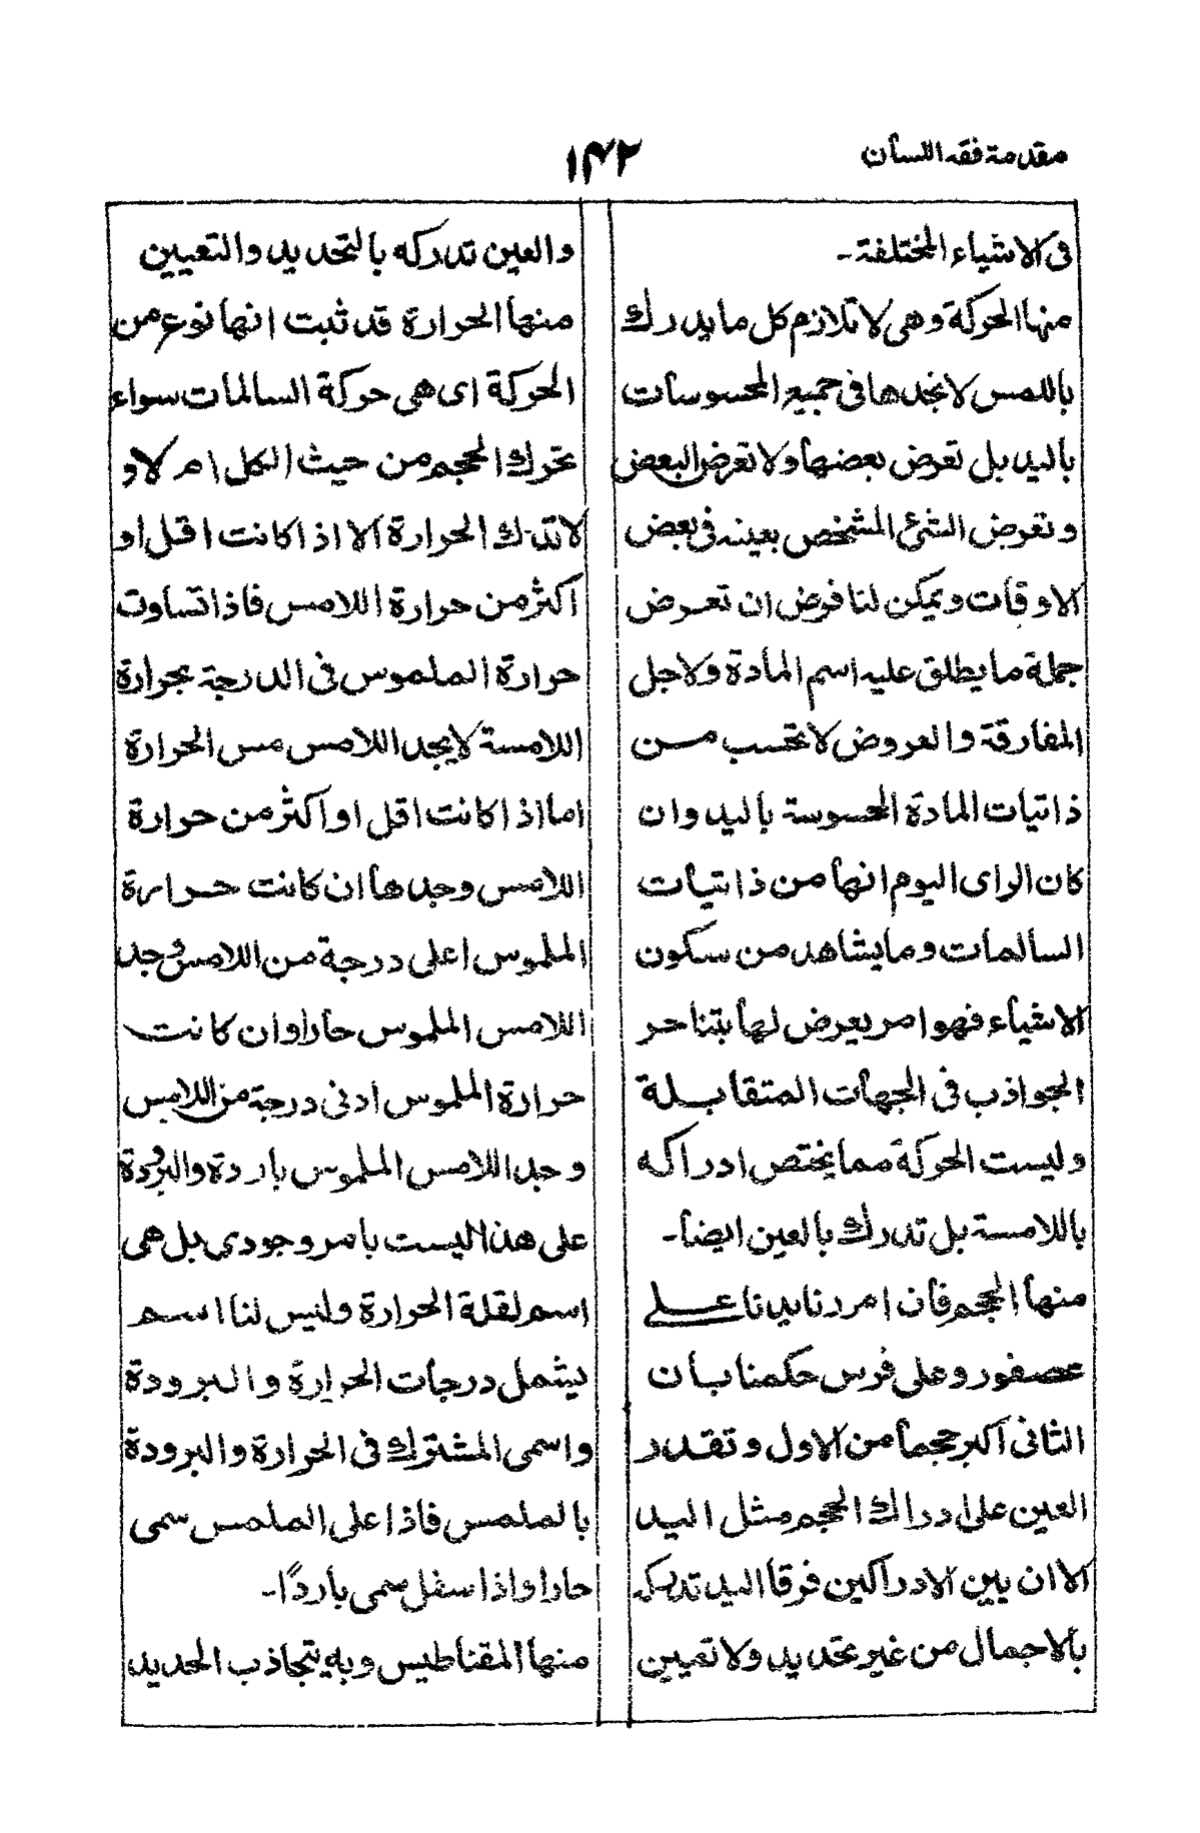 مقدمة فقه اللسان
١٤٢
فى الاشياء المختلفة۔
منها الحركة وهى لا تلازم كل ما يدرك
باللمس لا نجدها فى جميع المحسوسات
باليد بل تعرض بعضها ولا تعرض البعض
وتعرض الشئ المشخص بعينه فى بعض
الاوقات ويمكن لنا فرض ان تعرض
جملة ما يطلق عليه اسم المادة ولاجل
المفارقة والعروض لا تحسب من
ذاتيات المادة المحسوسة باليد وان
كان الراى اليوم انها من ذاتيات
السالمات وما يشاهد من سكون
الاشياء فهو امر يعرض لها بتناحر
الجواذب فى الجهات المتقابلة
وليست الحركة مما يختص ادراكه
باللامسة بل تدرك بالعين ايضا۔
منها الحجم فان امررنا يدنا على
عصفور وعلى فرس حكمنا بان
الثانى اكبر حجما من الاول وتقدر
العين على ادراك الحجم مثل اليد
الا ان بين الادراكين فرقا اليد تدركه
بالاجمال من غير تحديد ولا تعيين
والعين تدركه بالتحديد والتعيين
منها الحرارة قد ثبت انها نوع من
الحركة اى هى حركة السالمات سواء
تحرك الحجم من حيث الكل ام لا و
لا تدرك الحرارة الا اذا كانت اقل او
اكثر من حرارة اللامس فاذا تساوت
حرارة الملموس فى الدرجة بحرارة
اللامسة لا يجد اللامس مس الحرارة
اما اذا كانت اقل او اكثر من حرارة
اللامس وجدها ان كانت حرارة
الملموس اعلى درجة من اللامس وجد
اللامس الملموس حارا وان كانت
حرارة الملموس ادنى درجة من اللامس
وجد اللامس الملموس باردة والبرودة
على هذا ليست بامر وجودى بل هى
اسم لقلة الحرارة وليس لنا اسم
يشمل درجات الحرارة والبرودة
واسمى المشترك فى الحرارة والبرودة
بالملمس فاذا على الملمس سمى
حارا واذا سفل سمى باردًا۔
منها المقناطيس وبه يتجاذب الحديد